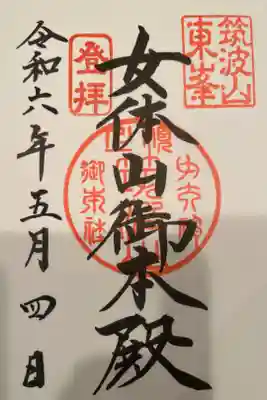 筑波山
東峯
登拝
女体山御本殿
令和六年五月四日